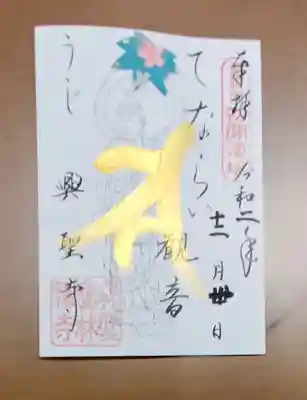 奉拝 令和二年
十二月卅日
てならい観音
うじ 興聖寺